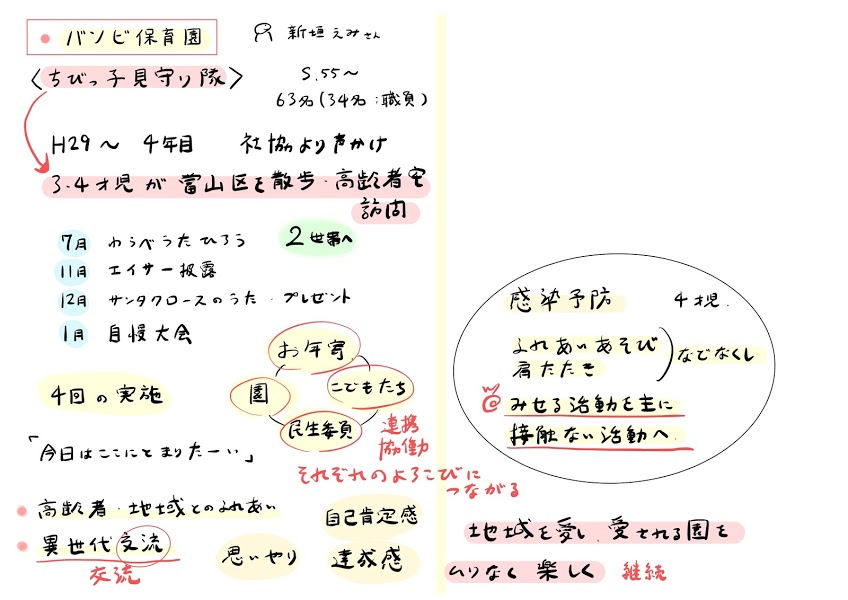 バンビ保育園
新垣えみさん
〈ちびっ子見守り隊〉
S.55〜
63名(34名:職員)
H29〜 4年目 社協より声かけ
3.4才児が當山区を散歩・高齢者宅
訪問
7月 わらべうたひろう
2世帯へ
11月 エイサー披露
12月 サンタクロースのうた・プレゼント
1月 自慢大会
4回の実施
お年寄
園
こどもたち
民生委員
連携
協働
「今日はここにとまりたーい」
それぞれのよろこびに
つながる
高齢者・地域とのふれあい
異世代交流
交流
自己肯定感
思いやり
達成感
感染予防 4才児.
ふれあいあそび
肩たたき
などなくし
みせる活動を主に
接触ない活動へ.
地域を愛し、愛される園を
ムリなく楽しく 継続